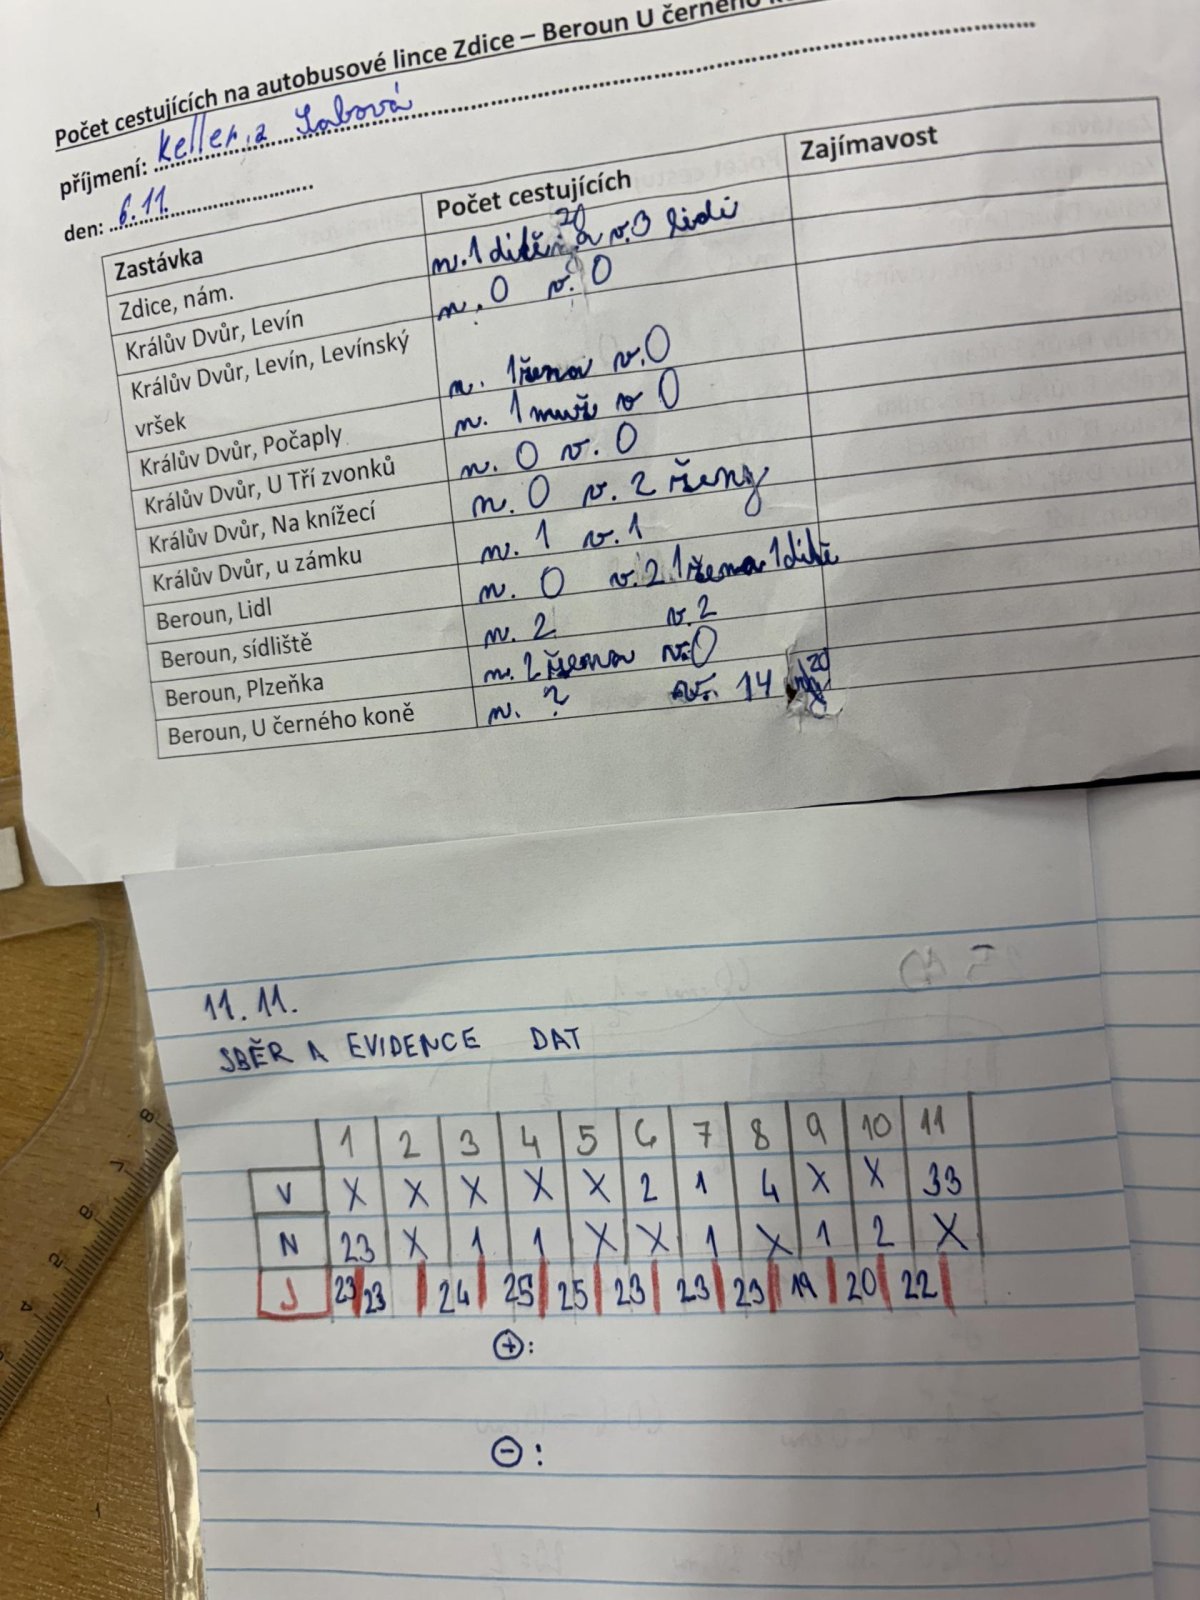 Počet cestujících na autobusové lince Zdice – Beroun U černého
příjmení: Keller, a Sabová
den: 6.11.
Zastávka Počet cestujících Zajímavost
Zdice, nám. n. 1 dítě 20 v. 3 lidi
Králův Dvůr, Levín n. 0 v. 0
Králův Dvůr, Levín, Levínský vršek n. 1 žena v. 0
Králův Dvůr, Počaply n. 1 muž v 0
Králův Dvůr, U Tří zvonků n. 0 v. 0
Králův Dvůr, Na knížecí n. 0 v. 2 ženy
Králův Dvůr, u zámku n. 1 v. 1
Beroun, Lidl n. 0 v. 2 1 žena 1 dítě
Beroun, sídliště n. 2 v. 2
Beroun, Plzeňka n. 2 žena v. 0
Beroun, U černého koně n. ? v. 14 20
11.11.
SBĚR A EVIDENCE DAT
1 2 3 4 5 6 7 8 9 10 11
V X X X X X 2 1 4 X X 33
N 23 X 1 1 X X 1 X 1 2 X
J 23 23 24 25 25 23 23 23 19 20 22
+:
-: